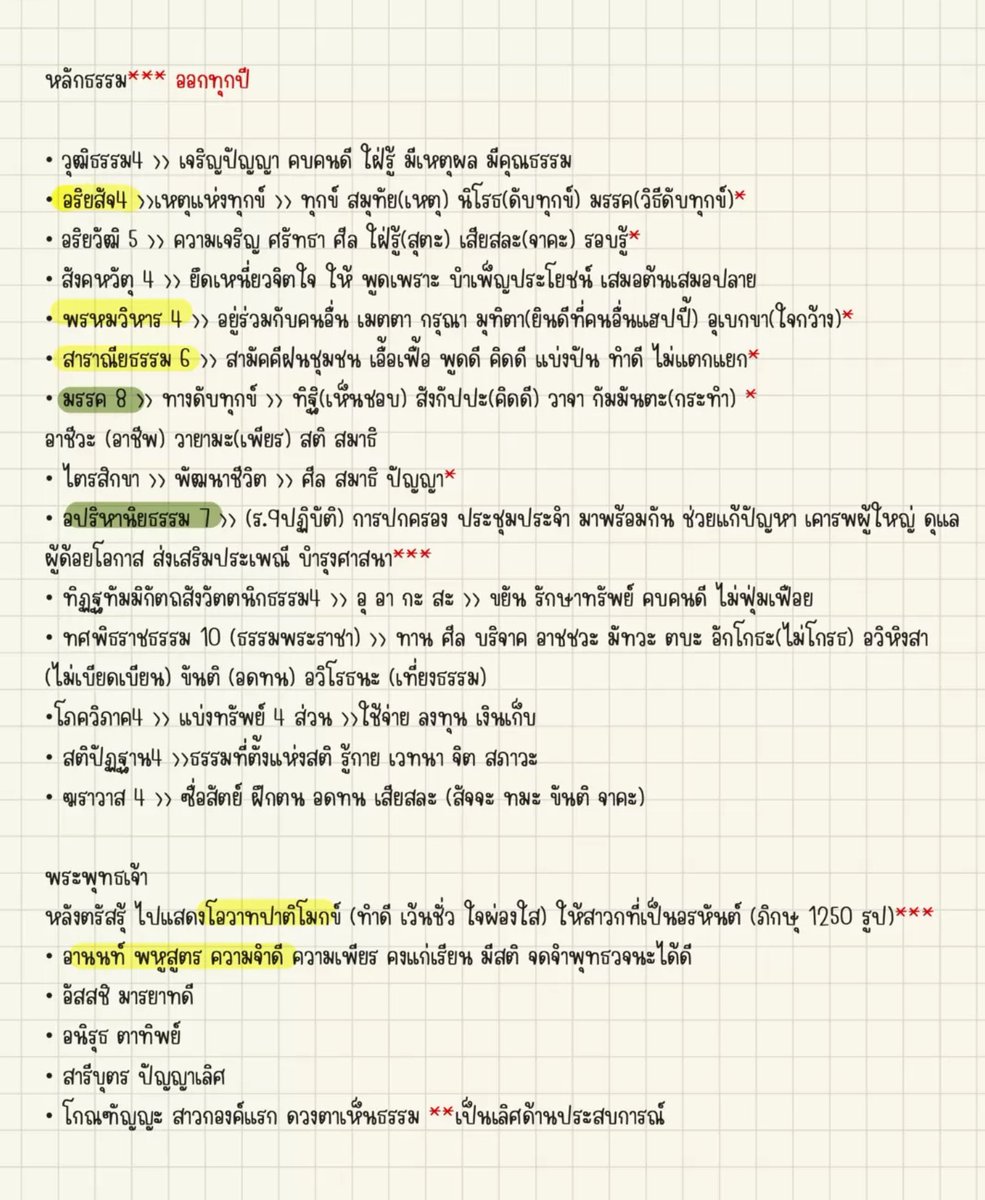 หลักธรรม*** ออกทุกปี
• วุฒิธรรม4 >> เจริญปัญญา คบคนดี ใฝ่รู้ มีเหตุผล มีคุณธรรม
• อริยสัจ4 >>เหตุแห่งทุกข์ >> ทุกข์ สมุทัย(เหตุ) นิโรธ(ดับทุกข์) มรรค(วิธีดับทุกข์)*
• อริยวัฒิ 5 >> ความเจริญ ศรัทธา ศีล ใฝ่รู้(สุตะ) เสียสละ(จาคะ) รอบรู้*
• สังคหวัตุ 4 >> ยึดเหนี่ยวจิตใจ ให้ พูดเพราะ บำเพ็ญประโยชน์ เสมอต้นเสมอปลาย
• พรหมวิหาร 4 >> อยู่ร่วมกับคนอื่น เมตตา กรุณา มุทิตา(ยินดีที่คนอื่นแฮปปี้) อุเบกขา(ใจกว้าง)*
• สาราณียธรรม 6 >> สามัคคีฝนชุมชน เอื้อเฟื้อ พูดดี คิดดี แบ่งปัน ทำดี ไม่แตกแยก*
• มรรค 8 >> ทางดับทุกข์ >> ทิฐิ(เห็นชอบ) สังกัปปะ(คิดดี) วาจา กัมมันตะ(กระทำ) *
อาชีวะ (อาชีพ) วายามะ(เพียร) สติ สมาธิ
• ไตรสิกขา >> พัฒนาชีวิต >> ศีล สมาธิ ปัญญา*
• อปริหานิยธรรม 7 >> (ร.9ปฏิบัติ) การปกครอง ประชุมประจำ มาพร้อมกัน ช่วยแก้ปัญหา เคารพผู้ใหญ่ ดูแล
ผู้ด้อยโอกาส ส่งเสริมประเพณี บำรุงศาสนา***
• ทิฏฐทัมมิกัตถสังวัตตนิกธรรม4 >> อุ อา กะ สะ >> ขยัน รักษาทรัพย์ คบคนดี ไม่ฟุ่มเฟือย
• ทศพิธราชธรรม 10 (ธรรมพระราชา) >> ทาน ศีล บริจาค อาชชวะ มัทวะ ตบะ อักโกธะ(ไม่โกรธ) อวิหิงสา
(ไม่เบียดเบียน) ขันติ (อดทน) อวิโรธนะ (เที่ยงธรรม)
•โภควิภาค4 >> แบ่งทรัพย์ 4 ส่วน >>ใช้จ่าย ลงทุน เงินเก็บ
• สติปัฏฐาน4 >>ธรรมที่ตั้งแห่งสติ รู้กาย เวทนา จิต สภาวะ
• ฆราวาส 4 >> ซื่อสัตย์ ฝึกตน อดทน เสียสละ (สัจจะ ทมะ ขันติ จาคะ)
พระพุทธเจ้า
หลังตรัสรุ้ ไปแสดงโอวาทปาติโมกข์ (ทำดี เว้นชั่ว ใจผ่องใส) ให้สาวกที่เป็นอรหันต์ (ภิกษุ 1250 รูป)***
• อานนท์ พหูสูตร ความจำดี ความเพียร คงแก่เรียน มีสติ จดจำพุทธวจนะได้ดี
• อัสสชิ มารยาทดี
• อนิรุธ ตาทิพย์
• สารีบุตร ปัญญาเลิศ
• โกณฑัญญะ สาวกองค์แรก ดวงตาเห็นธรรม **เป็นเลิศด้านประสบการณ์